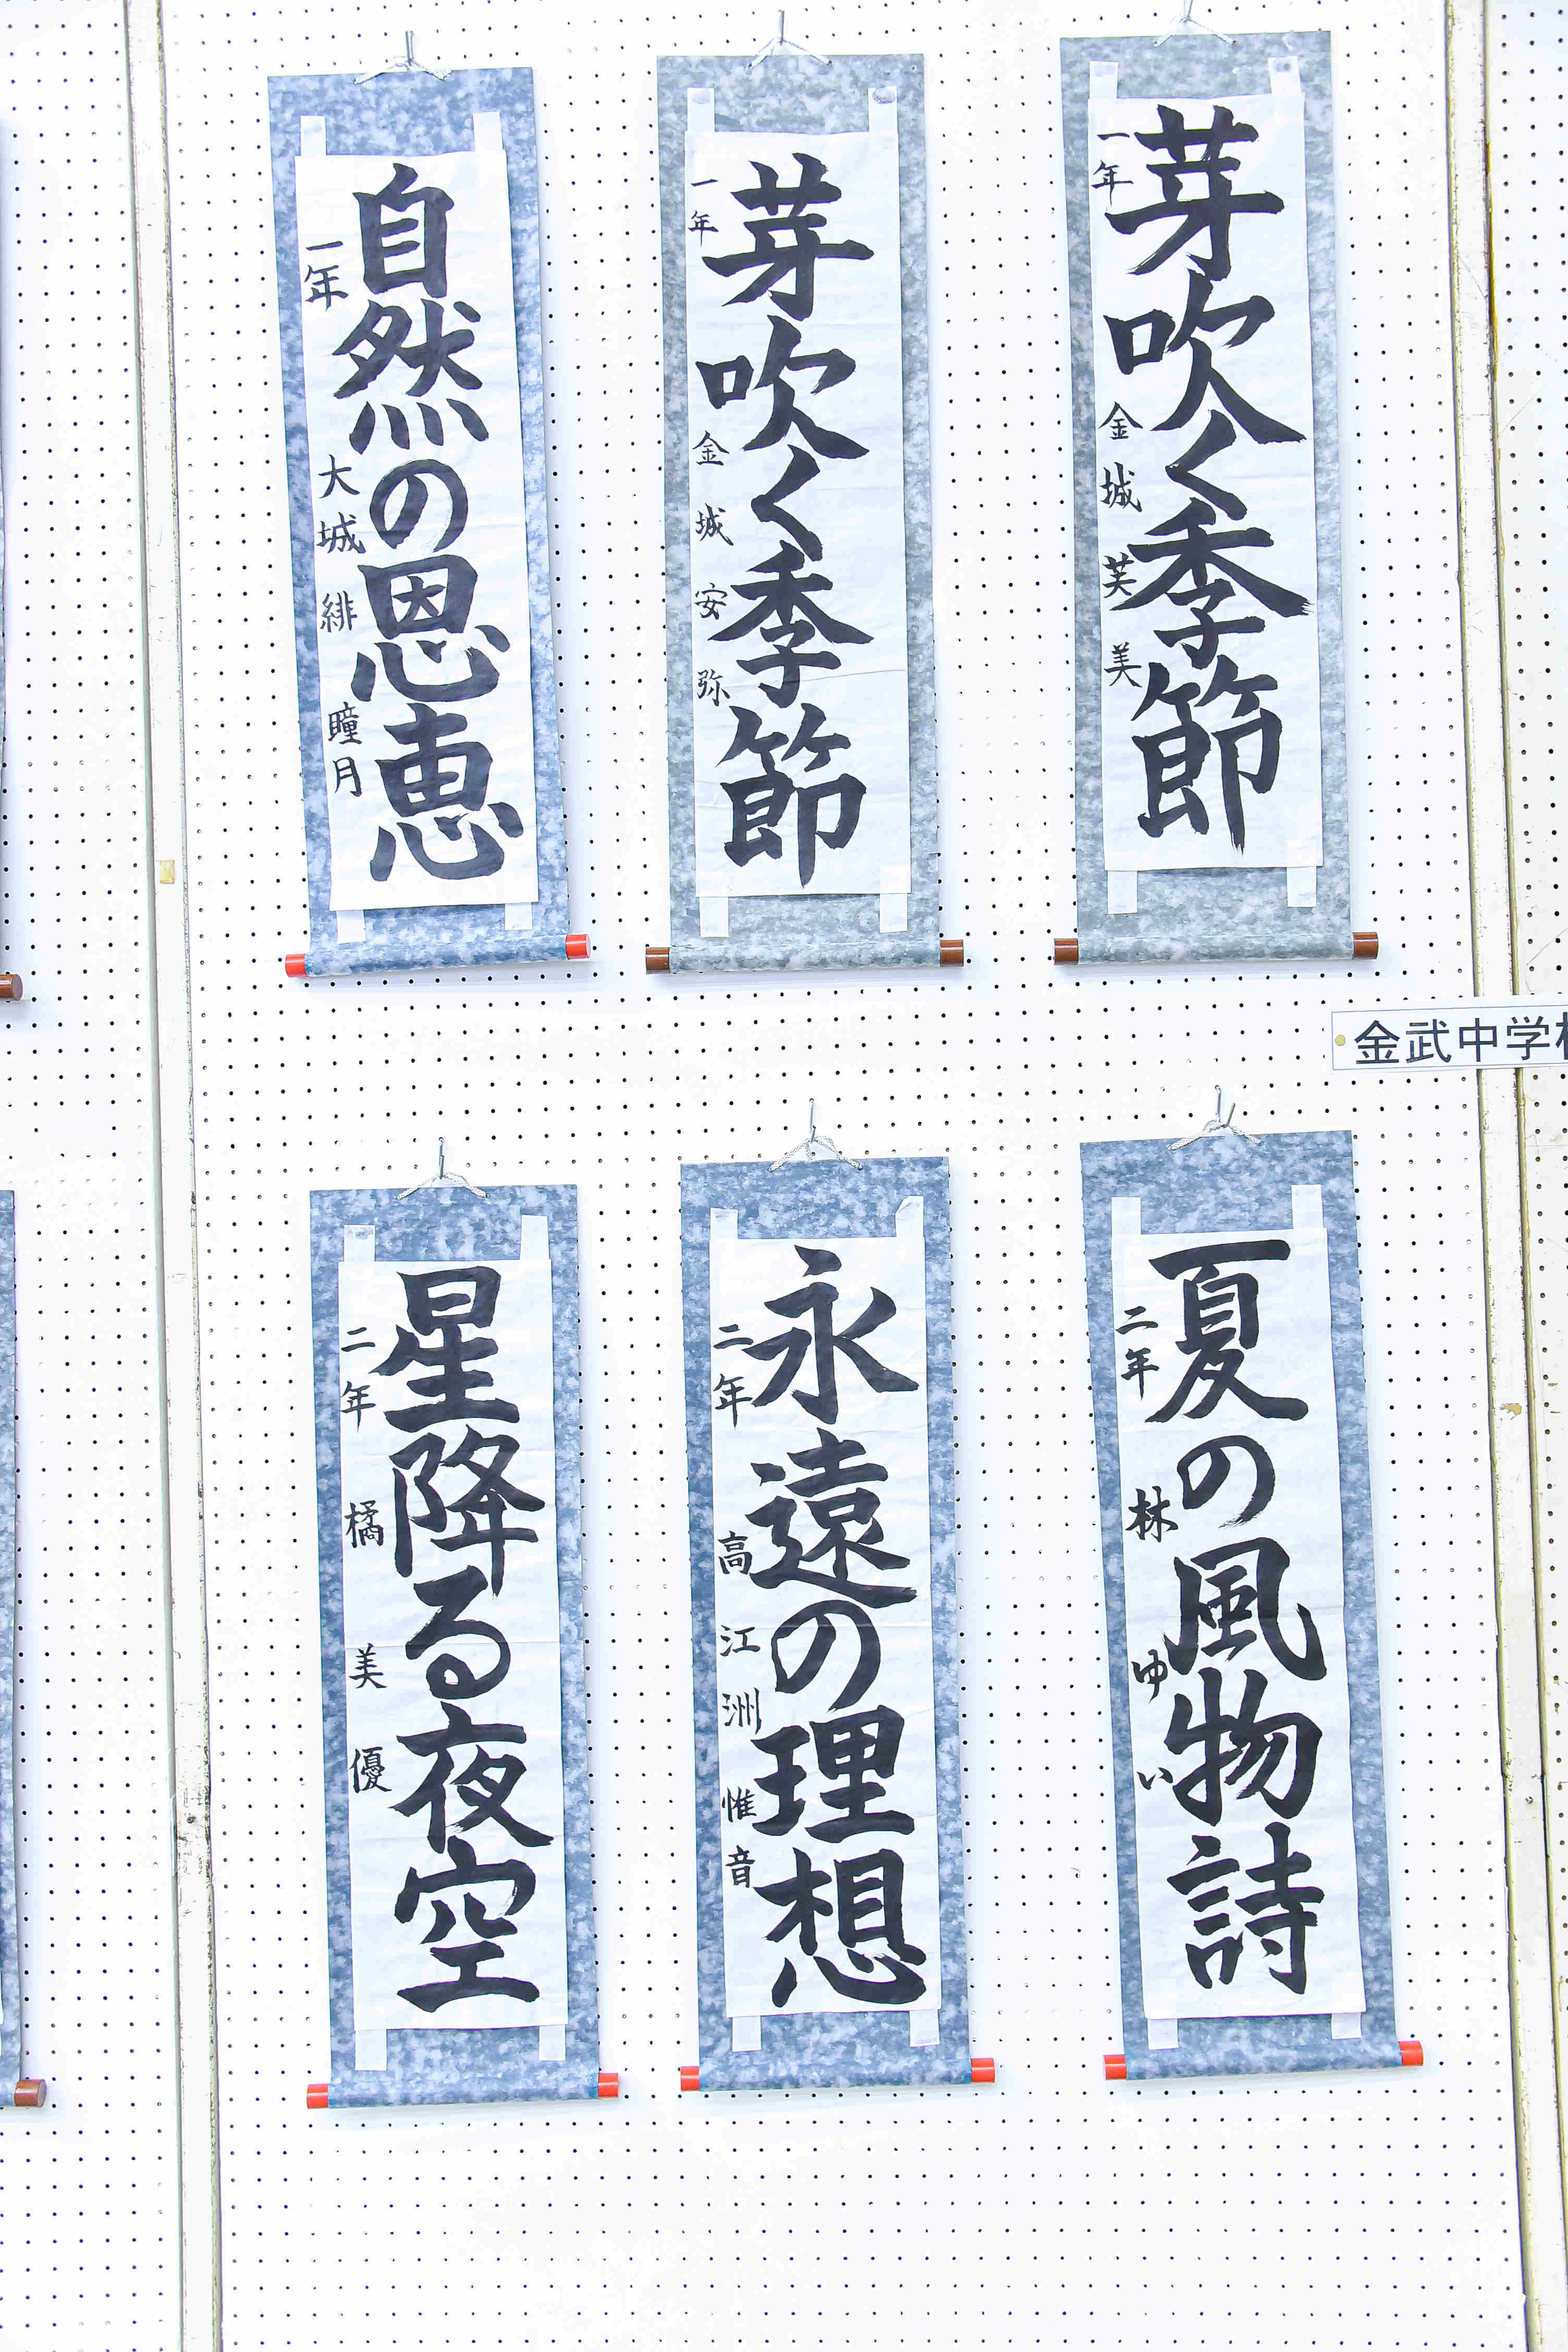 芽吹く季節
一年 金城 芙美
芽吹く季節
一年 金城 安弥
自然の恩恵
一年 大城 緋瞳月
金武中学校
夏の風物詩
二年 林 ゆい
永遠の理想
二年 高江洲 惟音
星降る夜空
二年 橘 美優